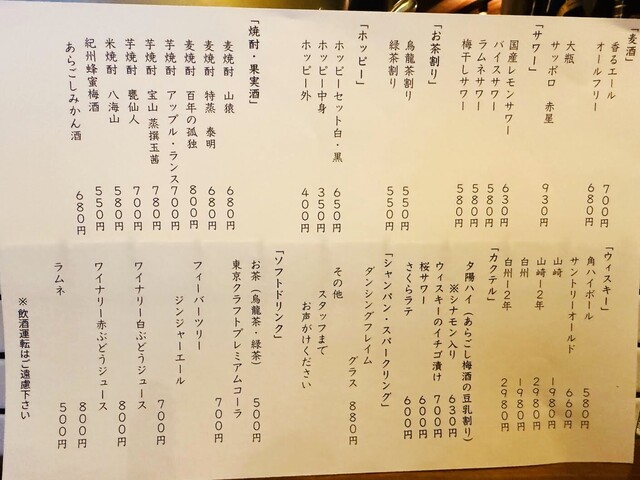 「麦酒」
香るエール 700円
オールフリー 680円
大瓶
サッポロ 赤星 930円
「サワー」
国産レモンサワー 630円
バイスサワー 580円
ラムネサワー 580円
梅干しサワー 580円
「お茶割り」
烏龍茶割り 550円
緑茶割り 550円
「ホッピー」
ホッピーセット白・黒 650円
ホッピー中身 350円
ホッピー外 400円
「焼酎・果実酒」
麦焼酎 山猿 680円
麦焼酎 特蒸 泰明 680円
麦焼酎 百年の孤独 800円
芋焼酎 アップル・ランス 700円
芋焼酎 宝山 蒸撰玉茜 780円
芋焼酎 甕仙人 700円
米焼酎 八海山 580円
紀州蜂蜜梅酒 550円
あらごしみかん酒 680円
「ウィスキー」
角ハイボール 580円
サントリーオールド 660円
山崎 1980円
山崎12年 2980円
白州 1980円
白州12年 2980円
「カクテル」
夕陽ハイ（あらごし梅酒の豆乳割り） 630円
※シナモン入り
ウィスキーのイチゴ漬け 700円
桜サワー 600円
さくらラテ 600円
「シャンパン・スパークリング」
ダンシングフレイム
グラス 880円
その他
スタッフまで
お声がけください
「ソフトドリンク」
お茶（烏龍茶・緑茶） 500円
東京クラフトプレミアムコーラ
700円
フィーバーツリー
ジンジャーエール
700円
ワイナリー白ぶどうジュース
800円
ワイナリー赤ぶどうジュース
800円
ラムネ 500円
※飲酒運転はご遠慮下さい